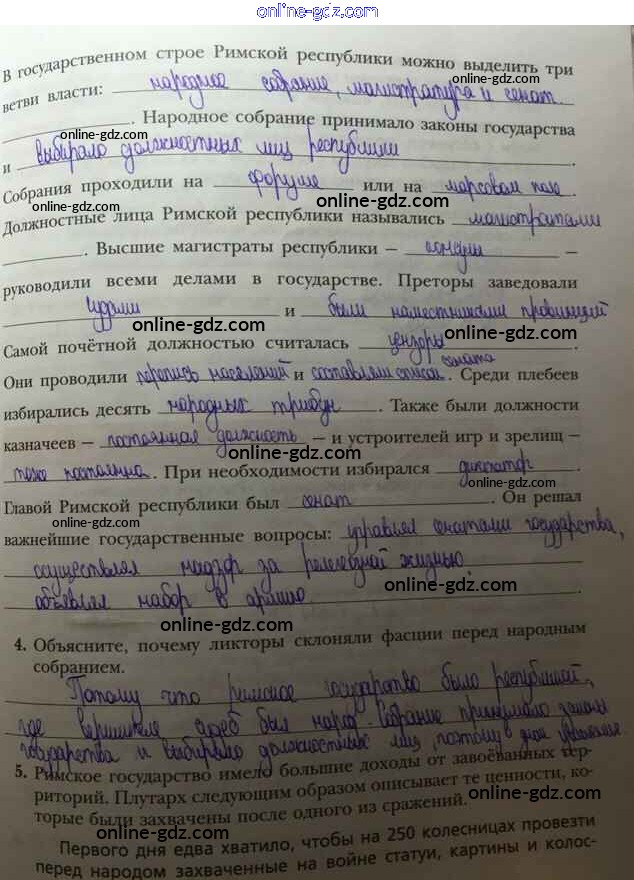 online-gdz.com
В государственном строе Римской республики можно выделить три
ветви власти: народное собрание, магистратура и сенат.
online-gdz.com
. Народное собрание принимало законы государства
online-gdz.com
и выбирало должностных лиц республики.
Собрания проходили на форуме или на марсовом поле.
online-gdz.com
Должностные лица Римской республики назывались магистратами
online-gdz.com
. Высшие магистраты республики – –
руководили всеми делами в государстве. Преторы заведовали
судами и были наместниками провинций
online-gdz.com
online-gdz.com
Самой почётной должностью считалась цензоры.
сената
Они проводили перепись населения и составляли список. Среди плебеев
online-gdz.com
избирались десять народных трибун. Также были должности
казначеев – постоянная должность – и устроителей игр и зрелищ –
online-gdz.com
тоже постоянна. При необходимости избирался диктатор.
online-gdz.com
Главой Римской республики был сенат. Он решал
online-gdz.com
важнейшие государственные вопросы: управлял государства,
осуществлял надзор за жизнью,
online-gdz.com
объявлял набор в армию
online-gdz.com
4. Объясните, почему ликторы склоняли фасции перед народным
собранием.
online-gdz.com
Потому что римское государство было республикой,
где был народ. Собрание принимало законы
online-gdz.com
государства и выбирало должностных лиц, поэтому
5. Римское государство имело большие доходы от завоёванных тер-
риторий. Плутарх следующим образом описывает те ценности, ко-
online-gdz.com
торые были захвачены после одного из сражений.
online-gdz.com
Первого дня едва хватило, чтобы на 250 колесницах провезти
перед народом захваченные на войне статуи, картины и колос-
online-gdz.com